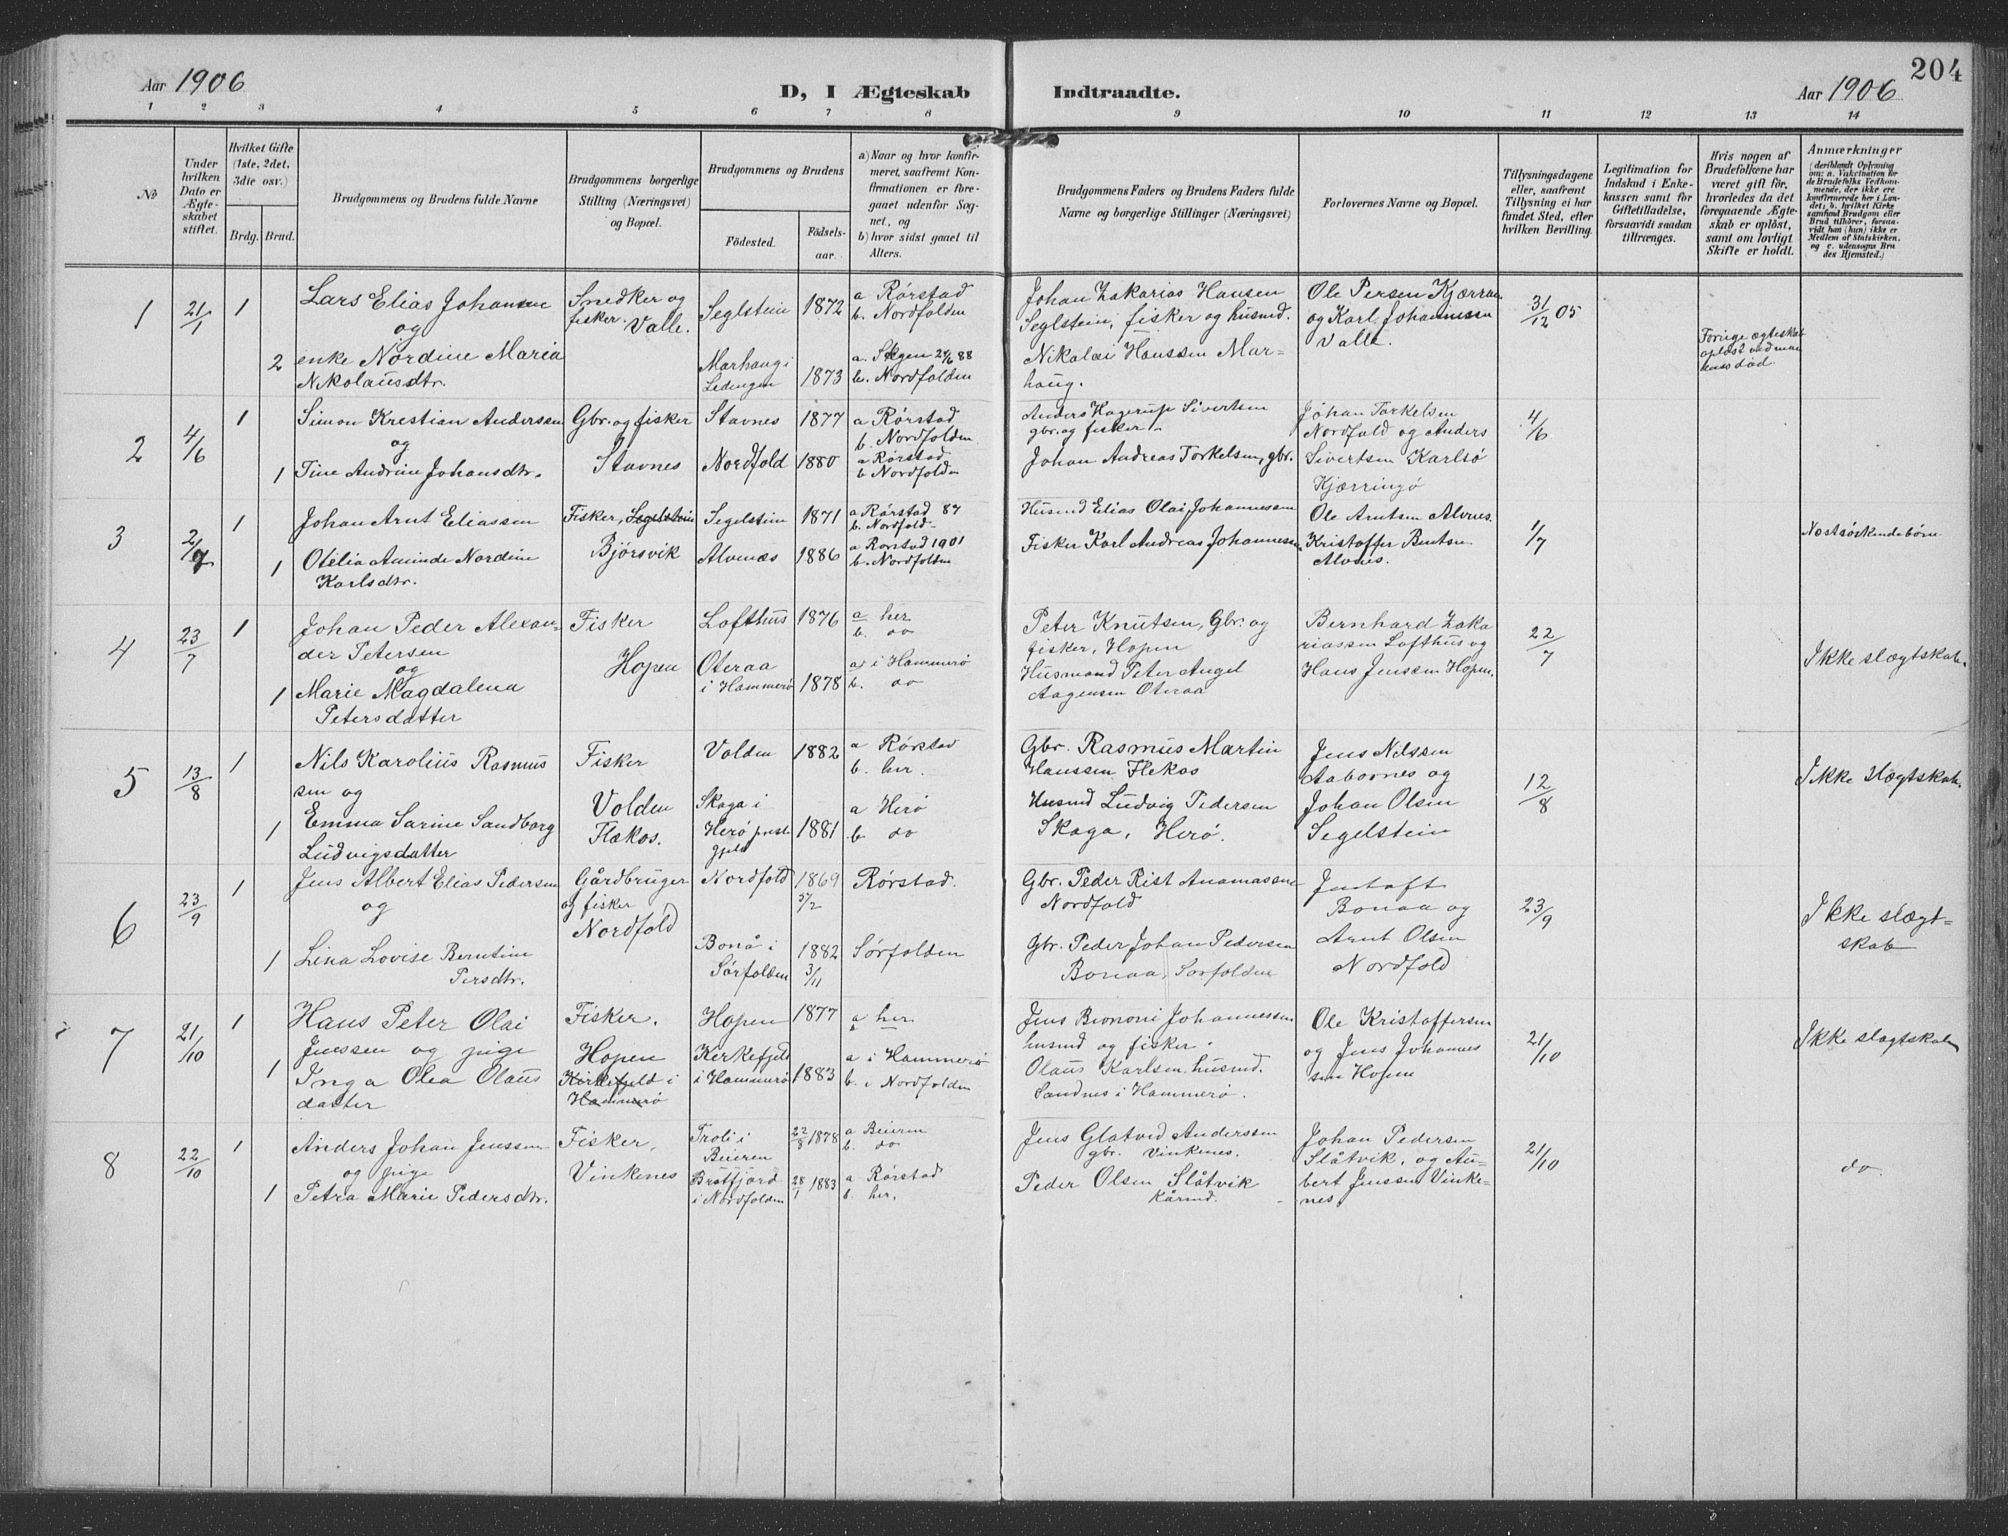 204
Aar 1906
D, I Ægteskab Indtraadte.
Aar 1906
1 2 3 4 5 6 7 8 9 10 11 12 13 14
№
Under hvilken Dato er Ægteskabet stiftet.
Hvilket Gifte (1ste, 2det, 3die osv.)
Brdg. Brud.
Brudgommens og Brudens fulde Navne
Brudgommens borgerlige Stilling (Næringsvei) og Bopæl.
Brudgommens og Brudens
Fødested. Fødselsaar.
a) Naar og hvor konfirmeret, saafremt Konfirmationen er foregaaet udenfor Sognet, og
b) hvor sidst gaaet til Alters.
Brudgommens Faders og Brudens Faders fulde Navne og borgerlige Stillinger (Næringsvei)
Forlovernes Navne og Bopæl.
Tillysningsdagene eller, saafremt Tillysning ei har fundet Sted, efter hvilken Bevilling.
Legitimation for Indskud i Enkekassen samt for Giftetilladelse, forsaavidt saadan tiltrænges.
Hvis nogen af Brudefolkene har været gift før, hvorledes da det foregaaende Ægteskab er opløst, samt om lovligt Skifte er holdt.
Anmærkninger
(deriblandt Oplysning om: a. Vaccination for de Brudefolks Vedkommende, der ikke ere konfirmerede her i Landet; b. hvilket Kirkesamfund Brudgom eller Brud tilhører, forsaavidt han (hun) ikke er Medlem af Statskirken, og c. udensogns Brudes Hjemsted.)
1 21/1 1 Lars Elias Johansen
og
2 enke Nordine Maria
Nikolausdtr.
Snedker og
fisker. Valle.
Seglstein 1872
Marhaug i
Lødingen 1873
a Rørstad
b. Nordfolden
a. Skgen 24/6 88
b. Nordfolden
Johan Zakarias Hansen
Seglstein, fisker og husmd.
Nikolai Hanssen Mar-
haug.
Ole Persen Kjærran
og Karl Johannessen
Valle.
31/12 05
Forrige ægteskab
opløst ved man
hans død.
2 4/6 1 Simon Krestian Anderssen
og
1 Tine Andrine Johansdtr.
Gbr. og fisker
Stavnes
Stavnes 1877
Nordfold 1880
a Rørstad
b. Nordfolden
a Rørstad
b Nordfolden
Anders Hagerup Sivertsen
gbr. og fisker
Johan Andreas Torkelsen, gbr.
Johan Torkelsen
Nordfold og Anders
Sivertsen Karlsö
Kjærringö
4/6
3 2/7 1 Johan Arnt Eliassen
1 Otelia Aminde Nordine
Karlsdtr.
Fisker, Segelstein
Bjørsvik
Segelstein 1871
Alvenæs 1886
a Rørstad 87
b. Nordfold
a Rørstad 1901
b. Nordfolden
Husmd Elias Olai Johannessen
Fisker Karl Andreas Johannessen
Ole Arntsen Alvnes.
Kristoffer Bentsen
Alvnes.
1/7
Næstsøskendebörn
4 23/7 1 Johan Peder Alexan-
der Petersen
og
1 Marie Magdalena
Petersdatter
Fisker
Hopen
Lofthus 1876
Oteraa
i Hammerö 1878
a her
b. do
a i Hammerö
b. do
Peter Knutsen, Gbr. og
fisker, Hopen
Husmand Peter Angel
Aagensen Oteraa
Bernhard Zaka
riassen Lofthus og
Hans Jenssen Hopen.
22/7
Ikke slægtskab.
5 13/8 1 Nils Karolius Rasmus
sen og
1 Emma Sarine Sandborg
Ludvigsdatter
Fisker
Volden
Flækos.
Volden 1882
Skaga i
Herö prest
gjeld 1881
a Rørstad
b. her.
a Herö
b do
Gbr. Rasmus Martin
Hanssen Flekos
Husmd Ludvig Pedersen
Skaga, Herö.
Jens Nilssen
Aabornes og
Johan Olsen
Segelstein
12/8
Ikke slægtskab.
6 23/9 1 Jens Albert Elias Pedersen
og
1 Lina Lovise Berntine
Persdtr.
Gårdbruger
og fisker
Nordfold
Nordfold 1869
Bonå i
Sørfolden 1882
3/11
Rørstad.
Sørfolden
Gbr. Peder Rist Anamassen
Nordfold
Gbr. Peder Johan Pedersen
Bonaa, Sørfolden
Bonaa og
Arnt Olsen
Nordfold
23/9
Ikke slægt-
skab
7 21/10 1 Hans Peter Olai
Jenssen og pige
1 Inga Olea Olaus
datter
Fisker.
Hopen
Kirkefjeld i
Hammerö
Hopen 1877
Kerkefjeld
i Hammerö 1883
a her
b
a i Hammerö
b. i Nordfolden
Jens Benoni Johannessen
husmd og fisker
Olaus Karlsen, husmd.
Sandnes i Hammerö.
Ole Kristoffersen
og Jens Johannes
sen Hopen
21/10
Ikke slægtskab
8 22/10 1 Anders Johan Jenssen
og pige
1 Petra Marie Pedersdtr.
Fisker,
Vinkenes
Troli i
Beieren 22/8 1878
Brötfjord
i Nordfolden 28/1 1883
a Beieren
b. do
a Rørstad
b. her.
Jens Glatved Anderssen
gbr. Vinkenes.
Peder Olsen Slåtvik
kårmd.
Johan Pedersen
Slåtvik, og Au-
bert Jenssen Vinke-
nes
21/10
do